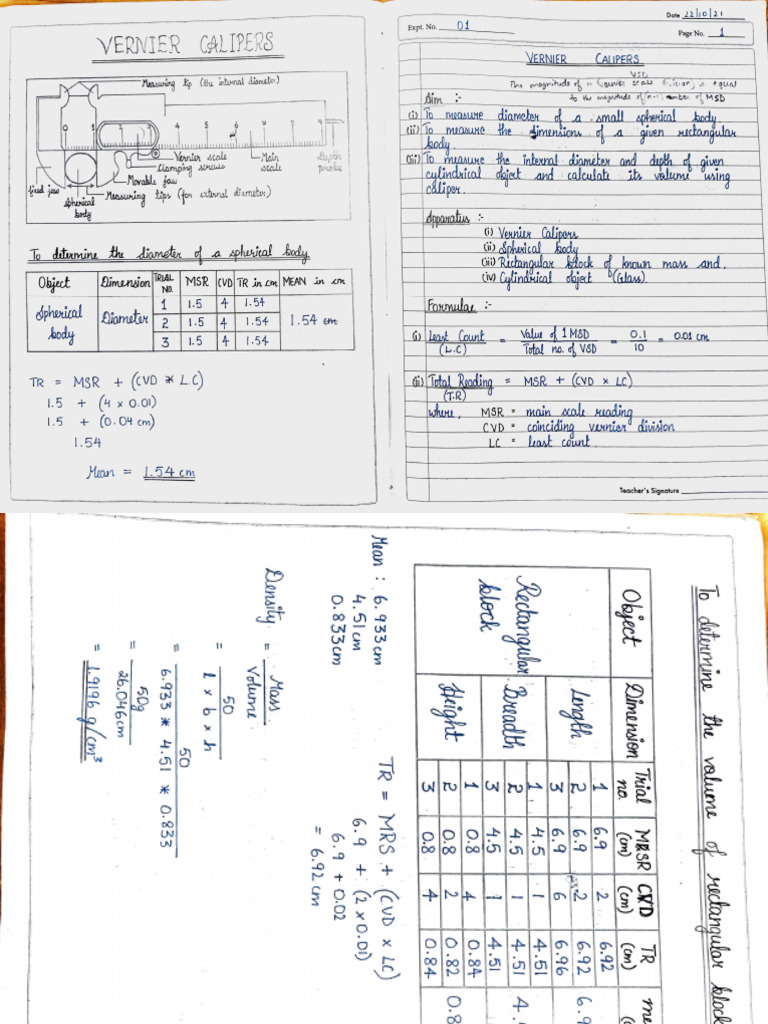 VERNIER CALIPERS
Measuring tip (the internal diameter)
0 1 4 5 6 9
Vernier scale
Main scale
Depth probe
Clamping screws
Movable jaw
fixed jaw
Measuring tips (for external diameter)
spherical body
To determine the diameter of a spherical body
Object Dimension TRIAL NO. MSR CVD TR in cm MEAN in cm
Spherical body Diameter 1 1.5 4 1.54 1.54 cm
2 1.5 4 1.54
3 1.5 4 1.54
TR = MSR + (CVD * LC)
1.5 + (4 x 0.01)
1.5 + (0.04 cm)
1.54
Mean = 1.54 cm
Date 22/10/21
Expt. No. 01
Page No. 1
VERNIER CALIPERS
VSD
The magnitude of n (vernier scale division) is equal
to the magnitude of (n-1) number of MSD
Aim :-
(i) To measure diameter of a small spherical body.
(ii) To measure the dimensions of a given rectangular
body.
(iii) To measure the internal diameter and depth of given
cylindrical object and calculate its volume using
caliper.
Apparatus :-
(i) Vernier Calipers
(ii) Spherical body
(iii) Rectangular block of known mass and,
(iv) Cylindrical object (Glass).
Formulae :-
(i) Least Count (L.C) = Value of 1 MSD / Total no. of VSD = 0.1 / 10 = 0.01 cm
(ii) Total Reading = MSR + (CVD x LC)
(T.R)
where, MSR = main scale reading
CVD = coinciding vernier division
LC = least count.
Teacher's Signature
To determine the volume of rectangular block
Object Dimension Trial no. MSR (cm) CVD (cm) TR (cm)
Rectangular block Length 1 6.9 2 6.92
2 6.9 2 6.92
3 6.9 6 6.96
Breadth 1 4.5 1 4.51
2 4.5 1 4.51
3 4.5 1 4.51
Height 1 0.8 4 0.84
2 0.8 2 0.82
3 0.8 4 0.84
Mean : 6.933 cm
4.51 cm
0.833 cm
TR = MRS + (CVD x LC)
6.9 + (2 x 0.01)
6.9 + 0.02
= 6.92 cm
Density = Mass / Volume
= 50 / l x b x h
= 50 / 6.933 * 4.51 * 0.833
= 50g / 26.046cm
= 1.9196 g/cm³